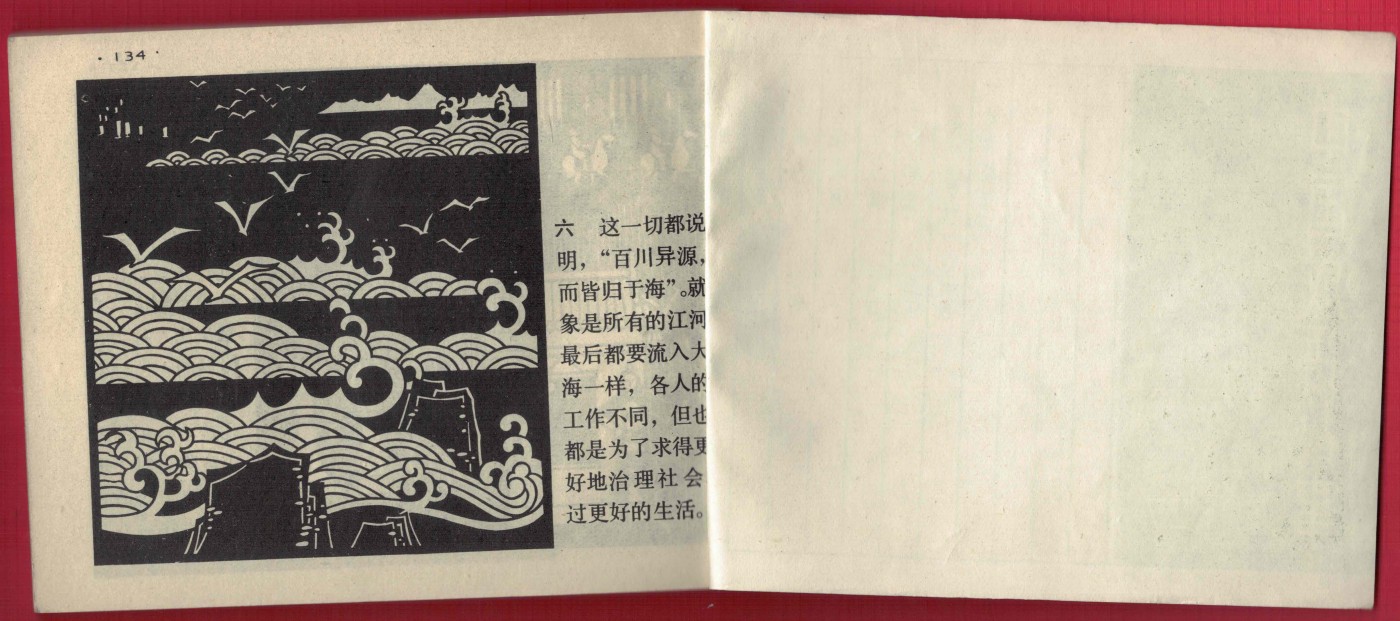 · 134 ·
六 这一切都说
明，“百川异源，
而皆归于海”。就
象是所有的江河
最后都要流入大
海一样，各人的
工作不同，但也
都是为了求得更
好地治理社会
过更好的生活。